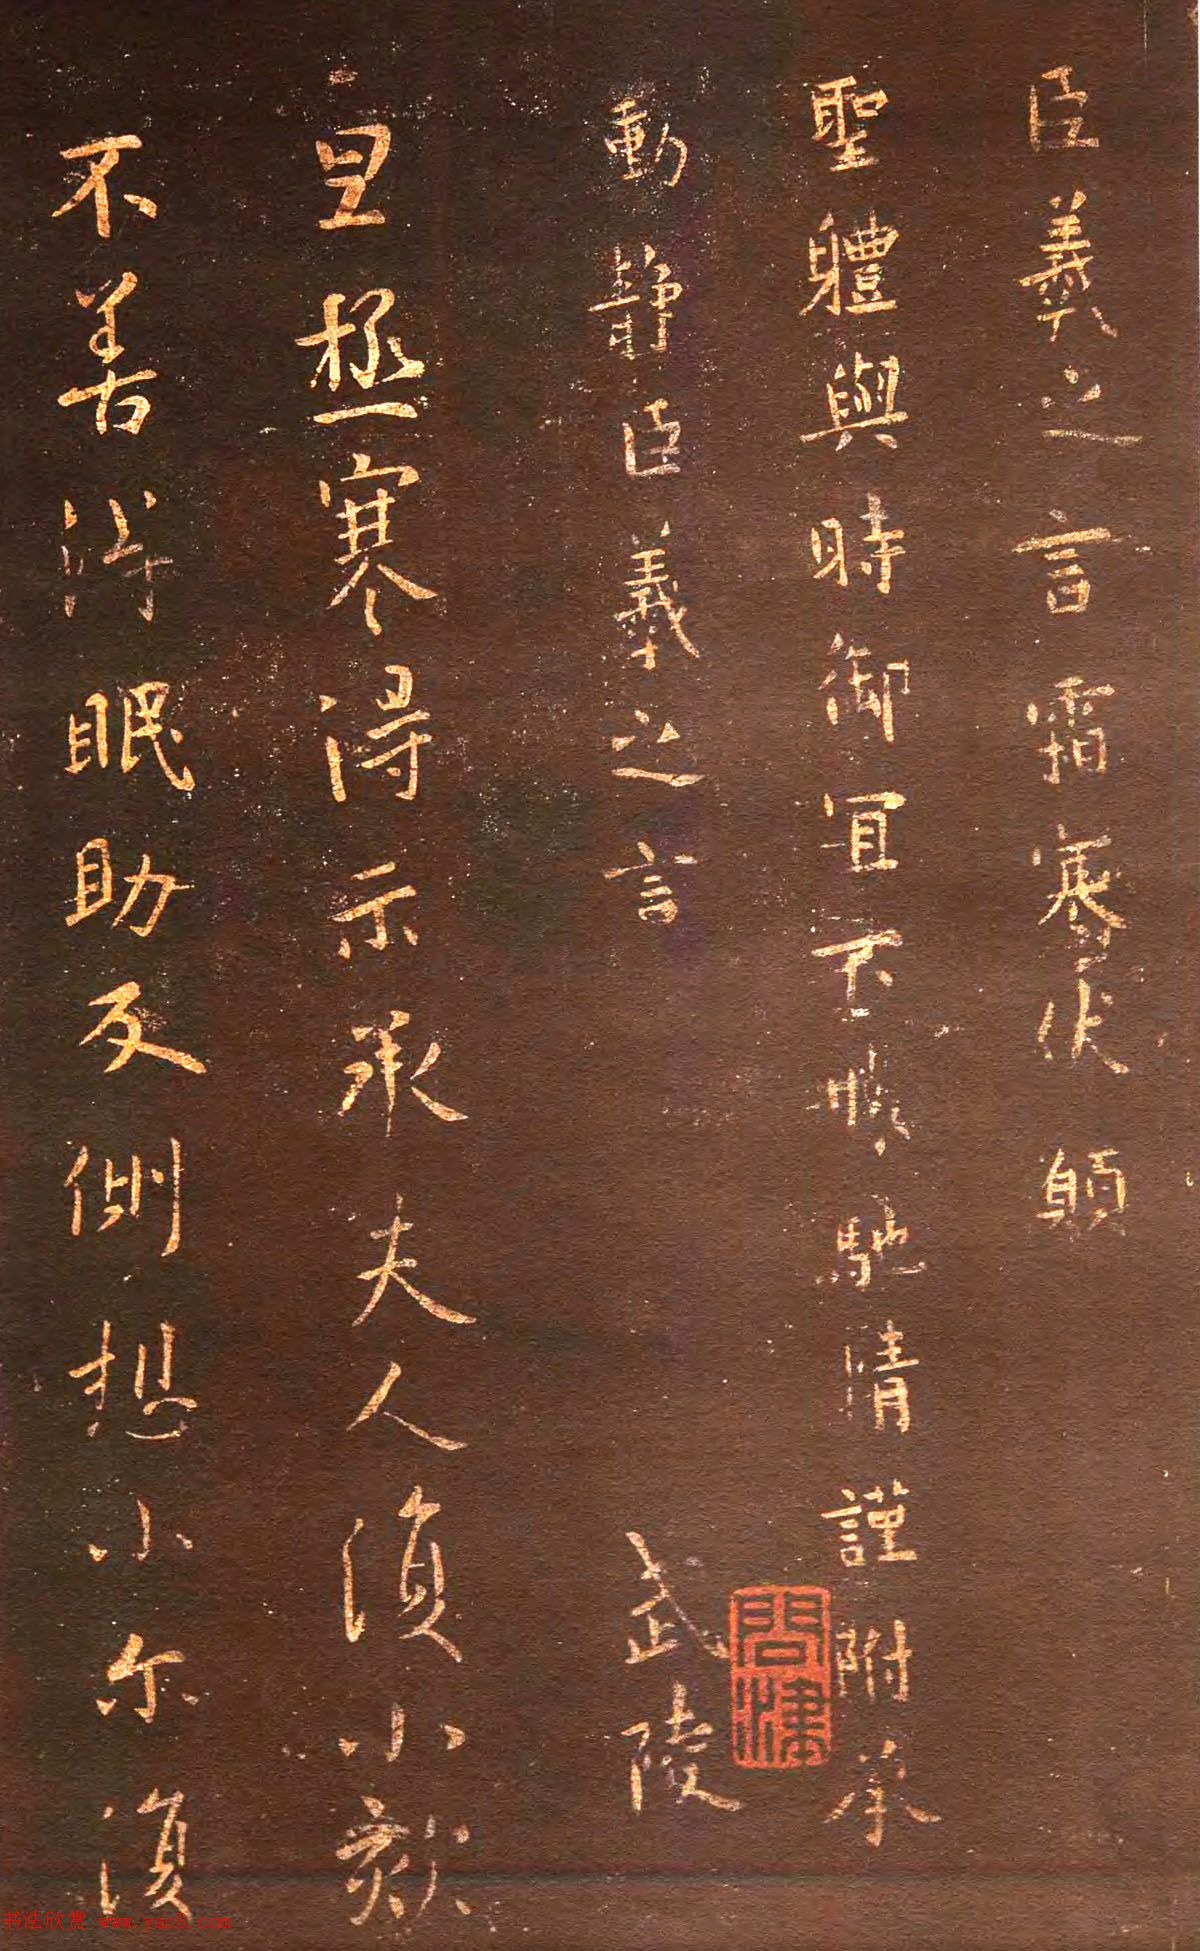 臣羲之言霜寒伏願
聖體與時御宜不勝馳情謹附承
動靜臣羲之言
武陵
旦極寒得示承夫人復小欬
不善得眠助反側想小尔復
书法欣赏 www.yac8.com